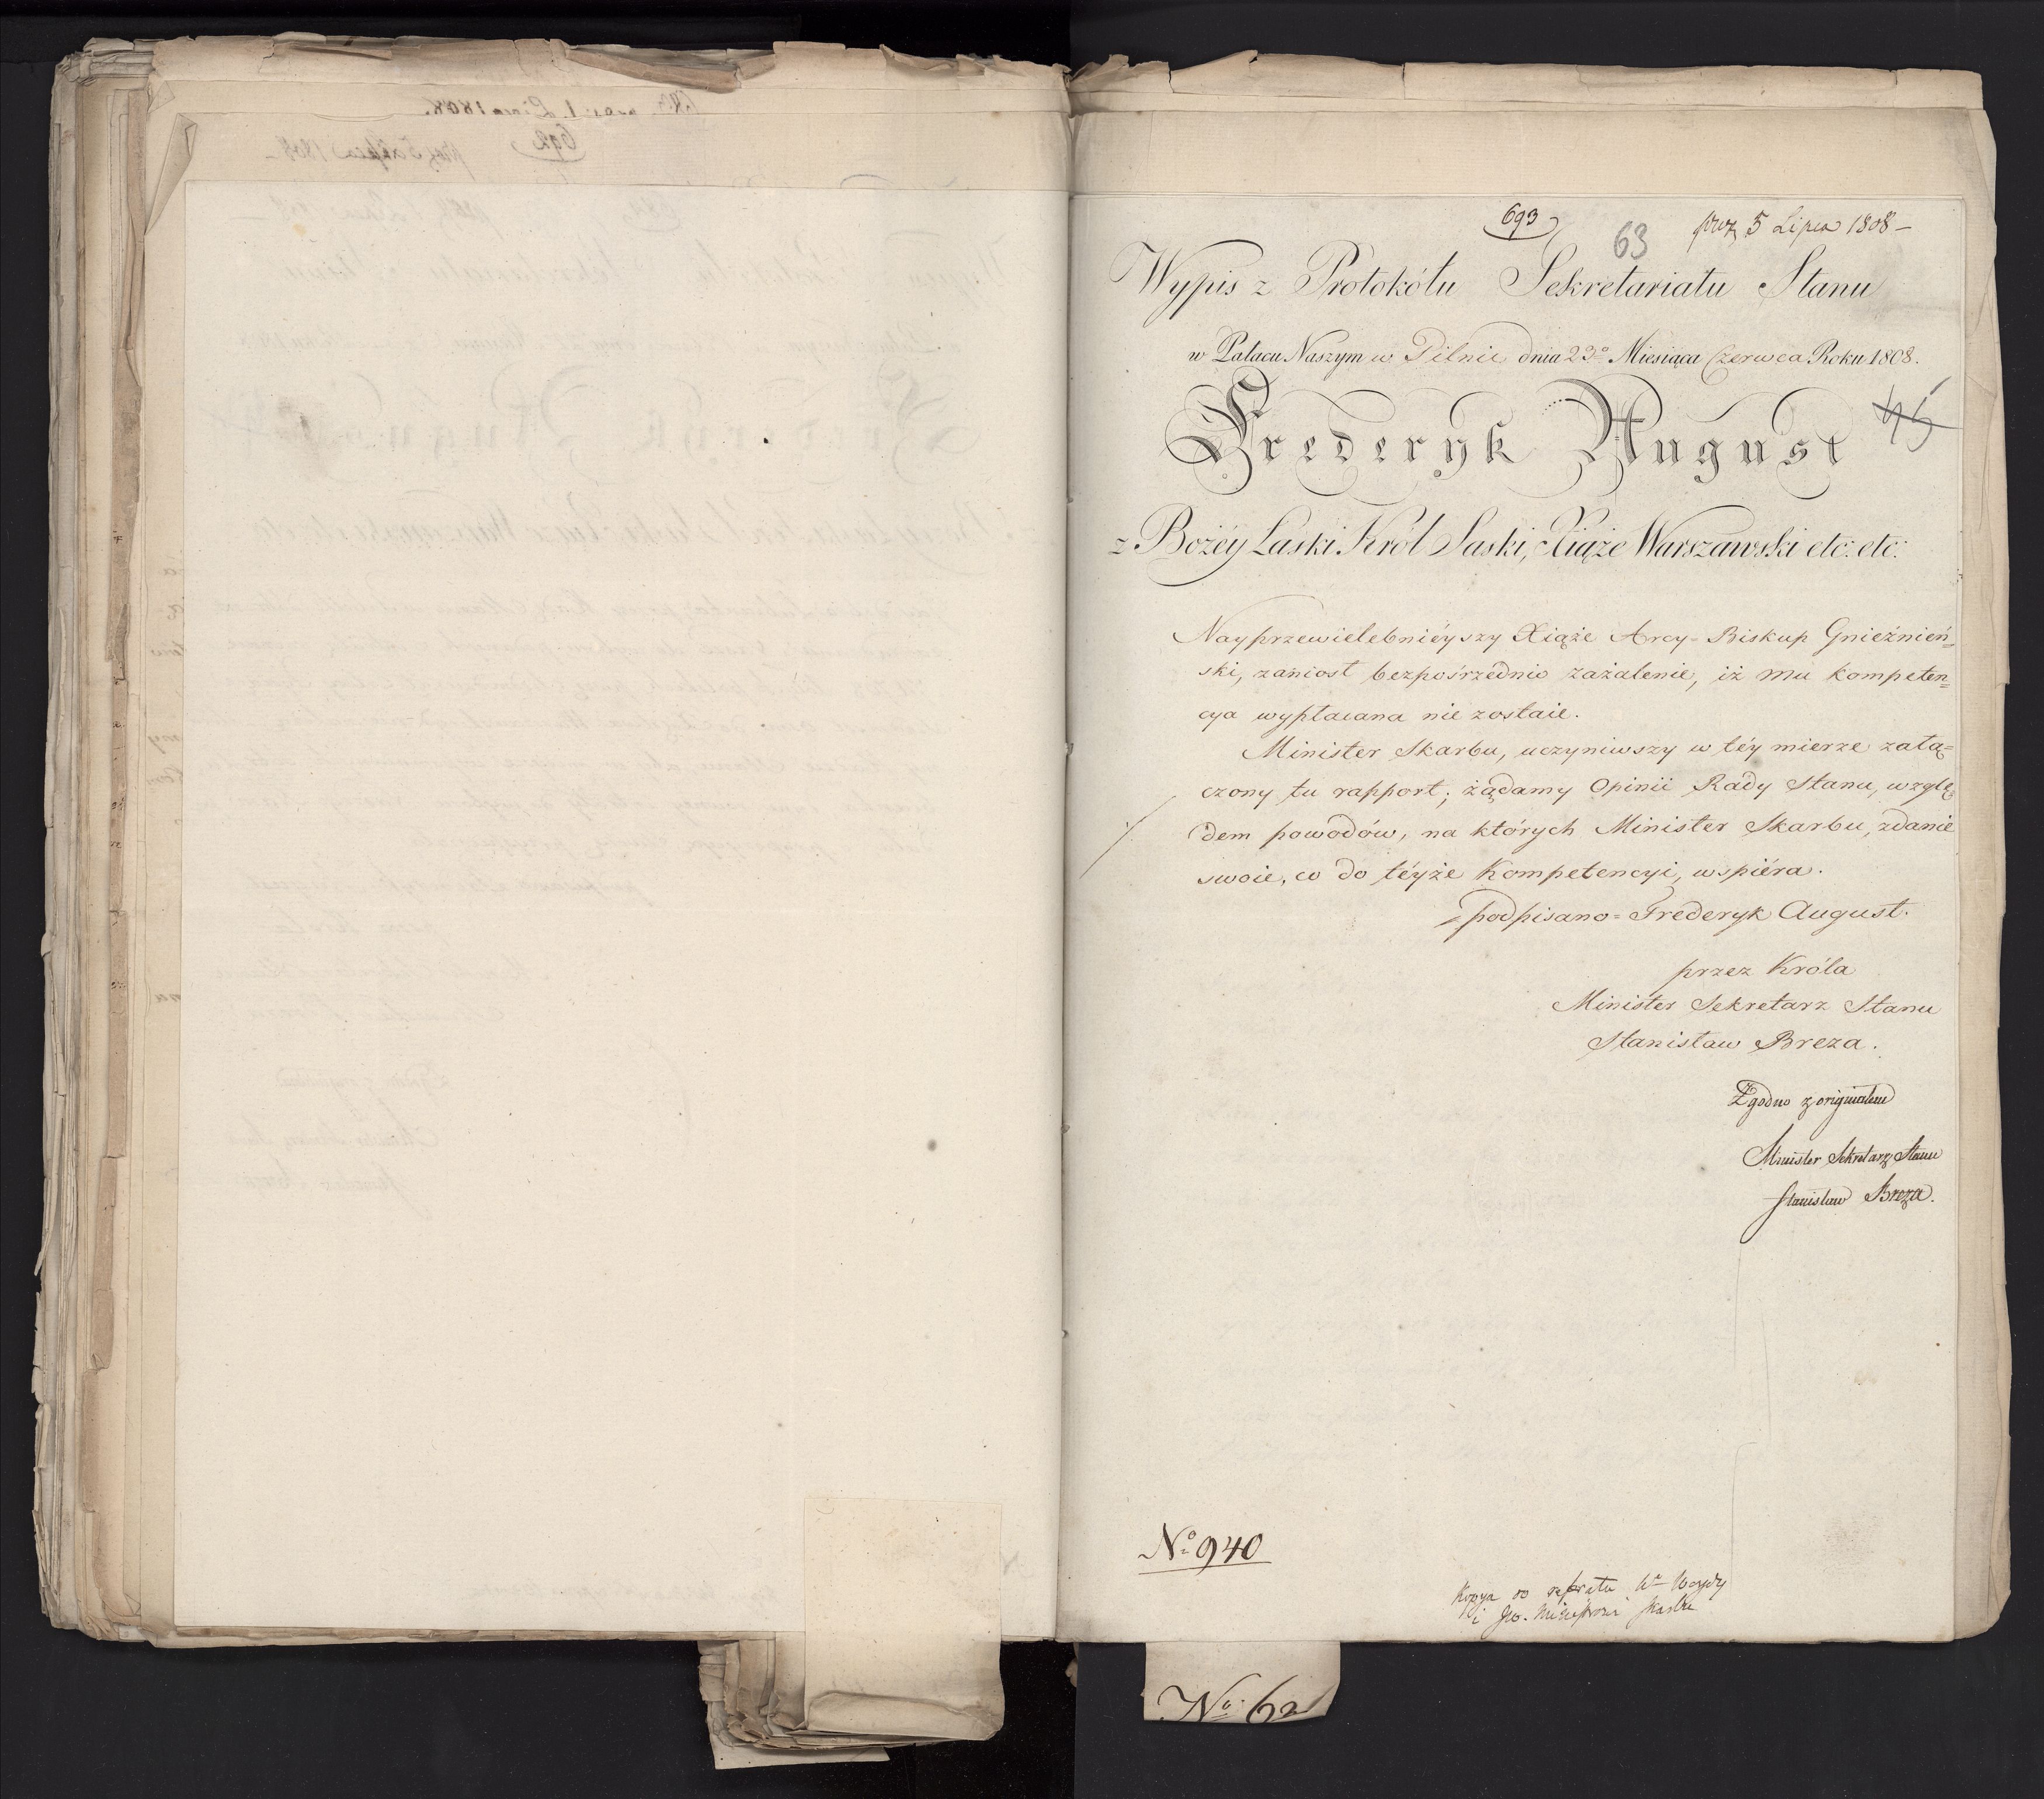 693
63
prez 5 Lipca 1808 -
Wypis z Protokółu Sekretariatu Stanu
w Pałacu Naszym w Pilnic dnia 23º Miesiąca Czerwca Roku 1808.
45
Frederyk August
z Bożéy Łaski Król Saski, Xiąże Warszawski etc: etc:
Nayprzewielebniéyszy Xiąże Arcy-Biskup Gnieźnień=
ski, zaniosł bezpośrzednio zażalenie, iż mu kompeten=
cya wypłacana nie zostaie.
Minister Skarbu, uczyniwszy w téy mierze załą=
czony tu rapport; żądamy Opinii Rady Stanu, wzglę
dem powodów, na których Minister Skarbu, zdanie
swoie, co do téyże Kompetencyi, wspiéra.
podpisano = Frederyk August.
przez Króla
Minister Sekretarz Stanu
Stanisław Breza.
Zgodno z originałem
Minister Sekretarz Stanu
Stanisław Breza.
Nº 940
Kopya do
i Skarbu
Nº 62